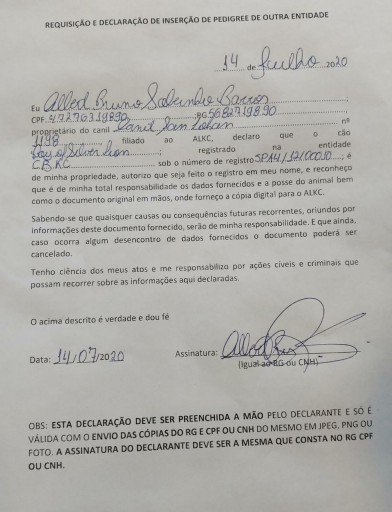 REQUISIÇÃO E DECLARAÇÃO DE INSERÇÃO DE PEDIGREE DE OUTRA ENTIDADE
14 de Julho 2020
Eu Albert Bruno Barros
CPF 47276319890 RG 568279890
proprietário do canil Canil San nº
1198 filiado ao ALKC, declaro que o cão
registrado na entidade
CBKC sob o número de registro ; é
de minha propriedade, autorizo que seja feito o registro em meu nome, e reconheço
que é de minha total responsabilidade os dados fornecidos e a posse do animal bem
como o documento original em mãos, onde forneço a cópia digital para o ALKC.
Sabendo-se que quaisquer causas ou consequências futuras recorrentes, oriundos por
informações deste documento fornecido, serão de minha responsabilidade. E que ainda,
caso ocorra algum desencontro de dados fornecidos o documento poderá ser
cancelado.
Tenho ciência dos meus atos e me responsabilizo por ações cíveis e criminais que
possam recorrer sobre as informações aqui declaradas.
O acima descrito é verdade e dou fé
Data: 14/07/2020 Assinatura:
(Igual ao RG ou CNH)
OBS: ESTA DECLARAÇÃO DEVE SER PREENCHIDA A MÃO PELO DECLARANTE E SÓ É
VÁLIDA COM O ENVIO DAS CÓPIAS DO RG E CPF OU CNH DO MESMO EM JPEG, PNG OU
FOTO. A ASSINATURA DO DECLARANTE DEVE SER A MESMA QUE CONSTA NO RG CPF
OU CNH.